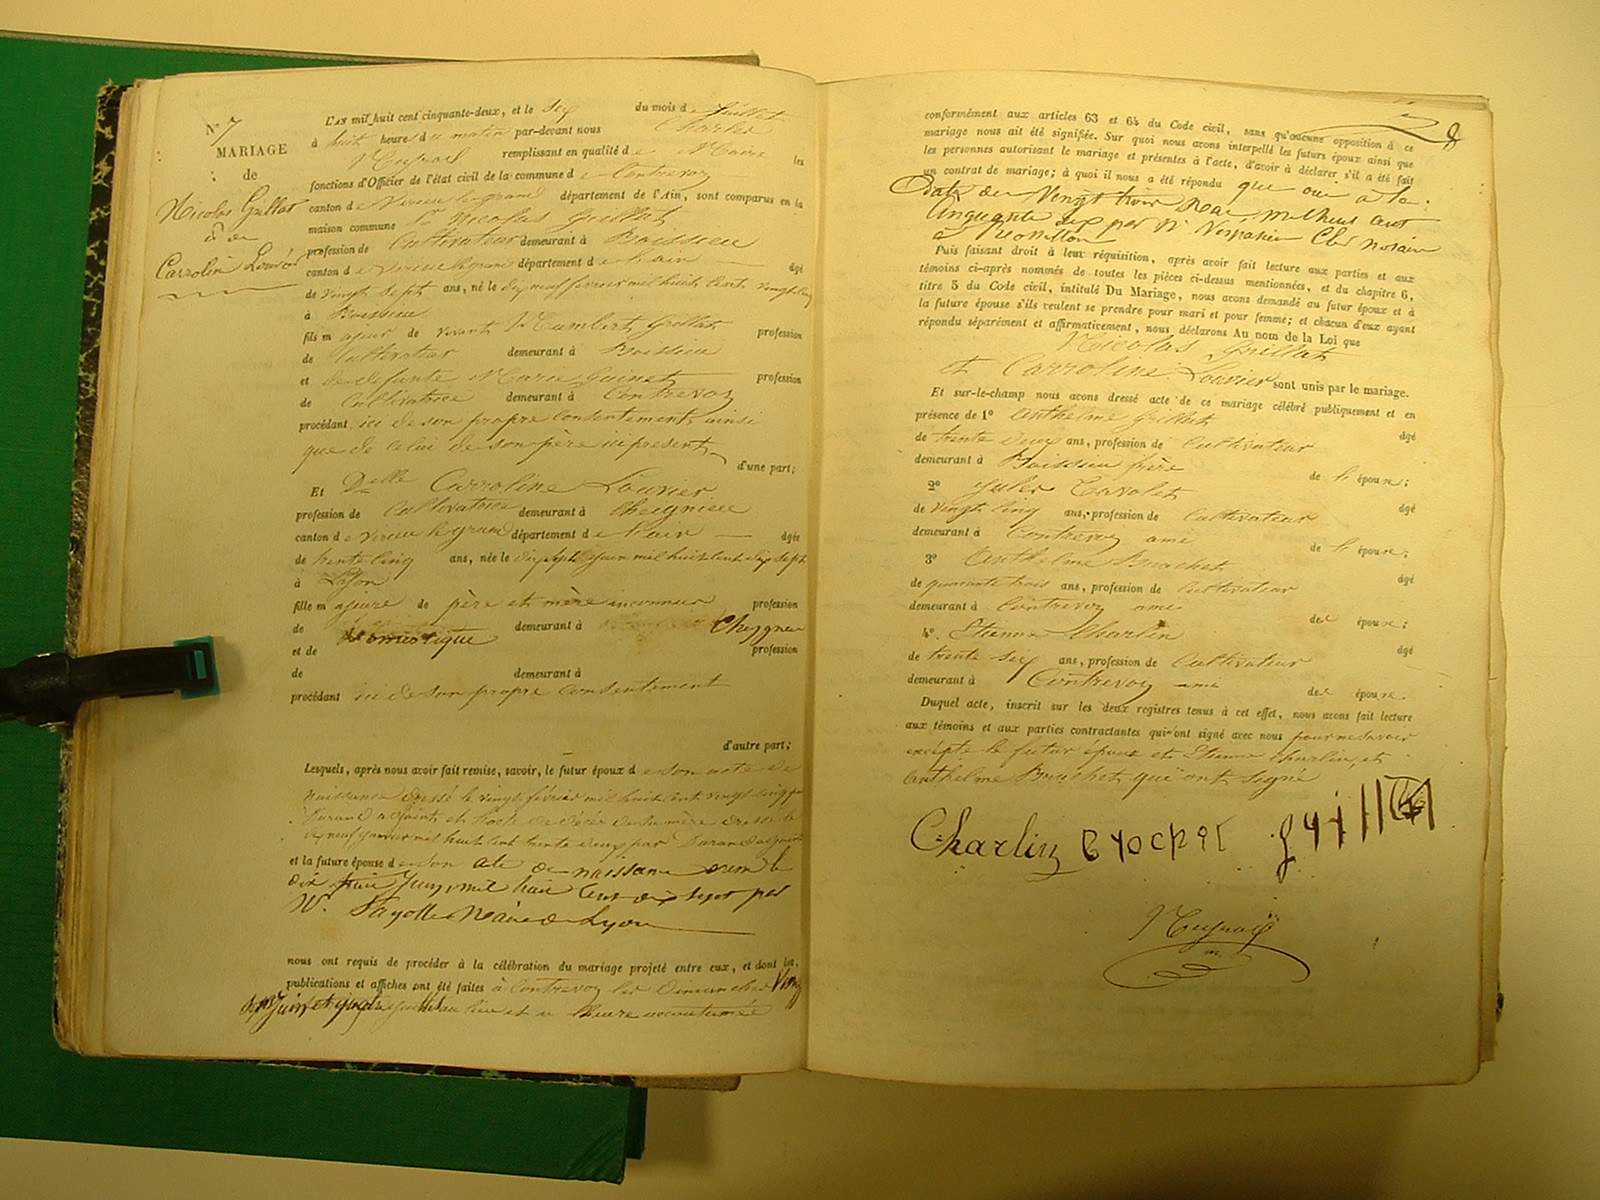 N° 7
MARIAGE
de
Nicolas Grillat
& de
Carroline Louvier
L'AN mil huit cent cinquante-deux, et le Six du mois de Juillet
à huit heure du matin par-devant nous Charles
remplissant en qualité de Maire les
fonctions d'Officier de l'état civil de la commune de Contrevoz
canton de Virieu le grand département de l'Ain, sont comparus en la
maison commune Sr Nicolas Grillat
profession de Cultivateur demeurant à Boissieu
canton de Virieu le grand département de l'ain âgé
de vingt sept ans, né le dix neuf février mil huit cent vingt cinq
à Boissieu
fils majeur de vivant Humbert Grillat profession
de Cultivateur demeurant à Boissieu
et de defunte Marie Guinet profession
de Cultivatrice demeurant à Contrevoz
procédant ici de son propre consentement, ainsi
que de celui de son père ici présent
d'une part;
Et Delle Carroline Louvier
profession de Cultivatrice demeurant à Cheignieu
canton de virieu le grand département de l'ain âgée
de trente cinq ans, née le dix sept Juin mil huit cent dix sept
à Lyon
fille majeure de père et mère inconnus profession
de domestique demeurant à Cheygnieu
et de profession
de demeurant à
procédant ici de son propre consentement
d'autre part;
Lesquels, après nous avoir fait remise, savoir, le futur époux de son acte de
naissance dressé le vingt février mil huit cent vingt cinq par
Durand adjoint et l'acte de décès de sa mère dressé le
dix neuf janvier mil huit cent trente deux par Durand adjoint
et la future épouse de son acte de naissance dressé le
dix huit Juin mil huit cent dix sept par
Mr. Fayolle Maire de Lyon
nous ont requis de procéder à la célébration du mariage projeté entre eux, et dont les
publications et affiches ont été faites à Contrevoz les Dimanches Vingt
Juin et quatre Juillet au lieu et à l'heure accoutumée
conformément aux articles 63 et 64 du Code civil, sans qu'aucune opposition à ce
mariage nous ait été signifiée. Sur quoi nous avons interpellé les futurs époux ainsi que
les personnes autorisant le mariage et présentes à l'acte, d'avoir à déclarer s'il a été fait
un contrat de mariage; à quoi il nous a été répondu que oui à la
date du Vingt trois Mai mil huit cent
Cinquante deux par Mr notaire
à
Puis faisant droit à leur réquisition, après avoir fait lecture aux parties et aux
témoins ci-après nommés de toutes les pièces ci-dessus mentionnées, et du chapitre 6,
titre 5 du Code civil, intitulé Du Mariage, nous avons demandé au futur époux et à
la future épouse s'ils veulent se prendre pour mari et pour femme; et chacun d'eux ayant
répondu séparément et affirmativement, nous déclarons Au nom de la Loi que
Nicolas Grillat
et Carroline Louvier sont unis par le mariage.
Et sur-le-champ nous avons dressé acte de ce mariage célébré publiquement et en
présence de 1° Anthelme Grillat âgé
de trente deux ans, profession de Cultivateur
demeurant à Boissieu frère de l'épouse;
2° Jules Tavolet âgé
de vingt cinq ans, profession de Cultivateur
demeurant à Contrevoz ami de l'épouse;
3° Anthelme Brochet âgé
de quarante trois ans, profession de Cultivateur
demeurant à Contrevoz ami de l'épouse;
4° Etienne Charlin âgé
de trente six ans, profession de Cultivateur
demeurant à Contrevoz ami de l'épouse.
Duquel acte, inscrit sur les deux registres tenus à cet effet, nous avons fait lecture
aux témoins et aux parties contractantes qui n'ont signé avec nous pour ne savoir
excepté le futur époux et Etienne Charlin, et
Anthelme Brochet qui ont signé
Charlin Brochet